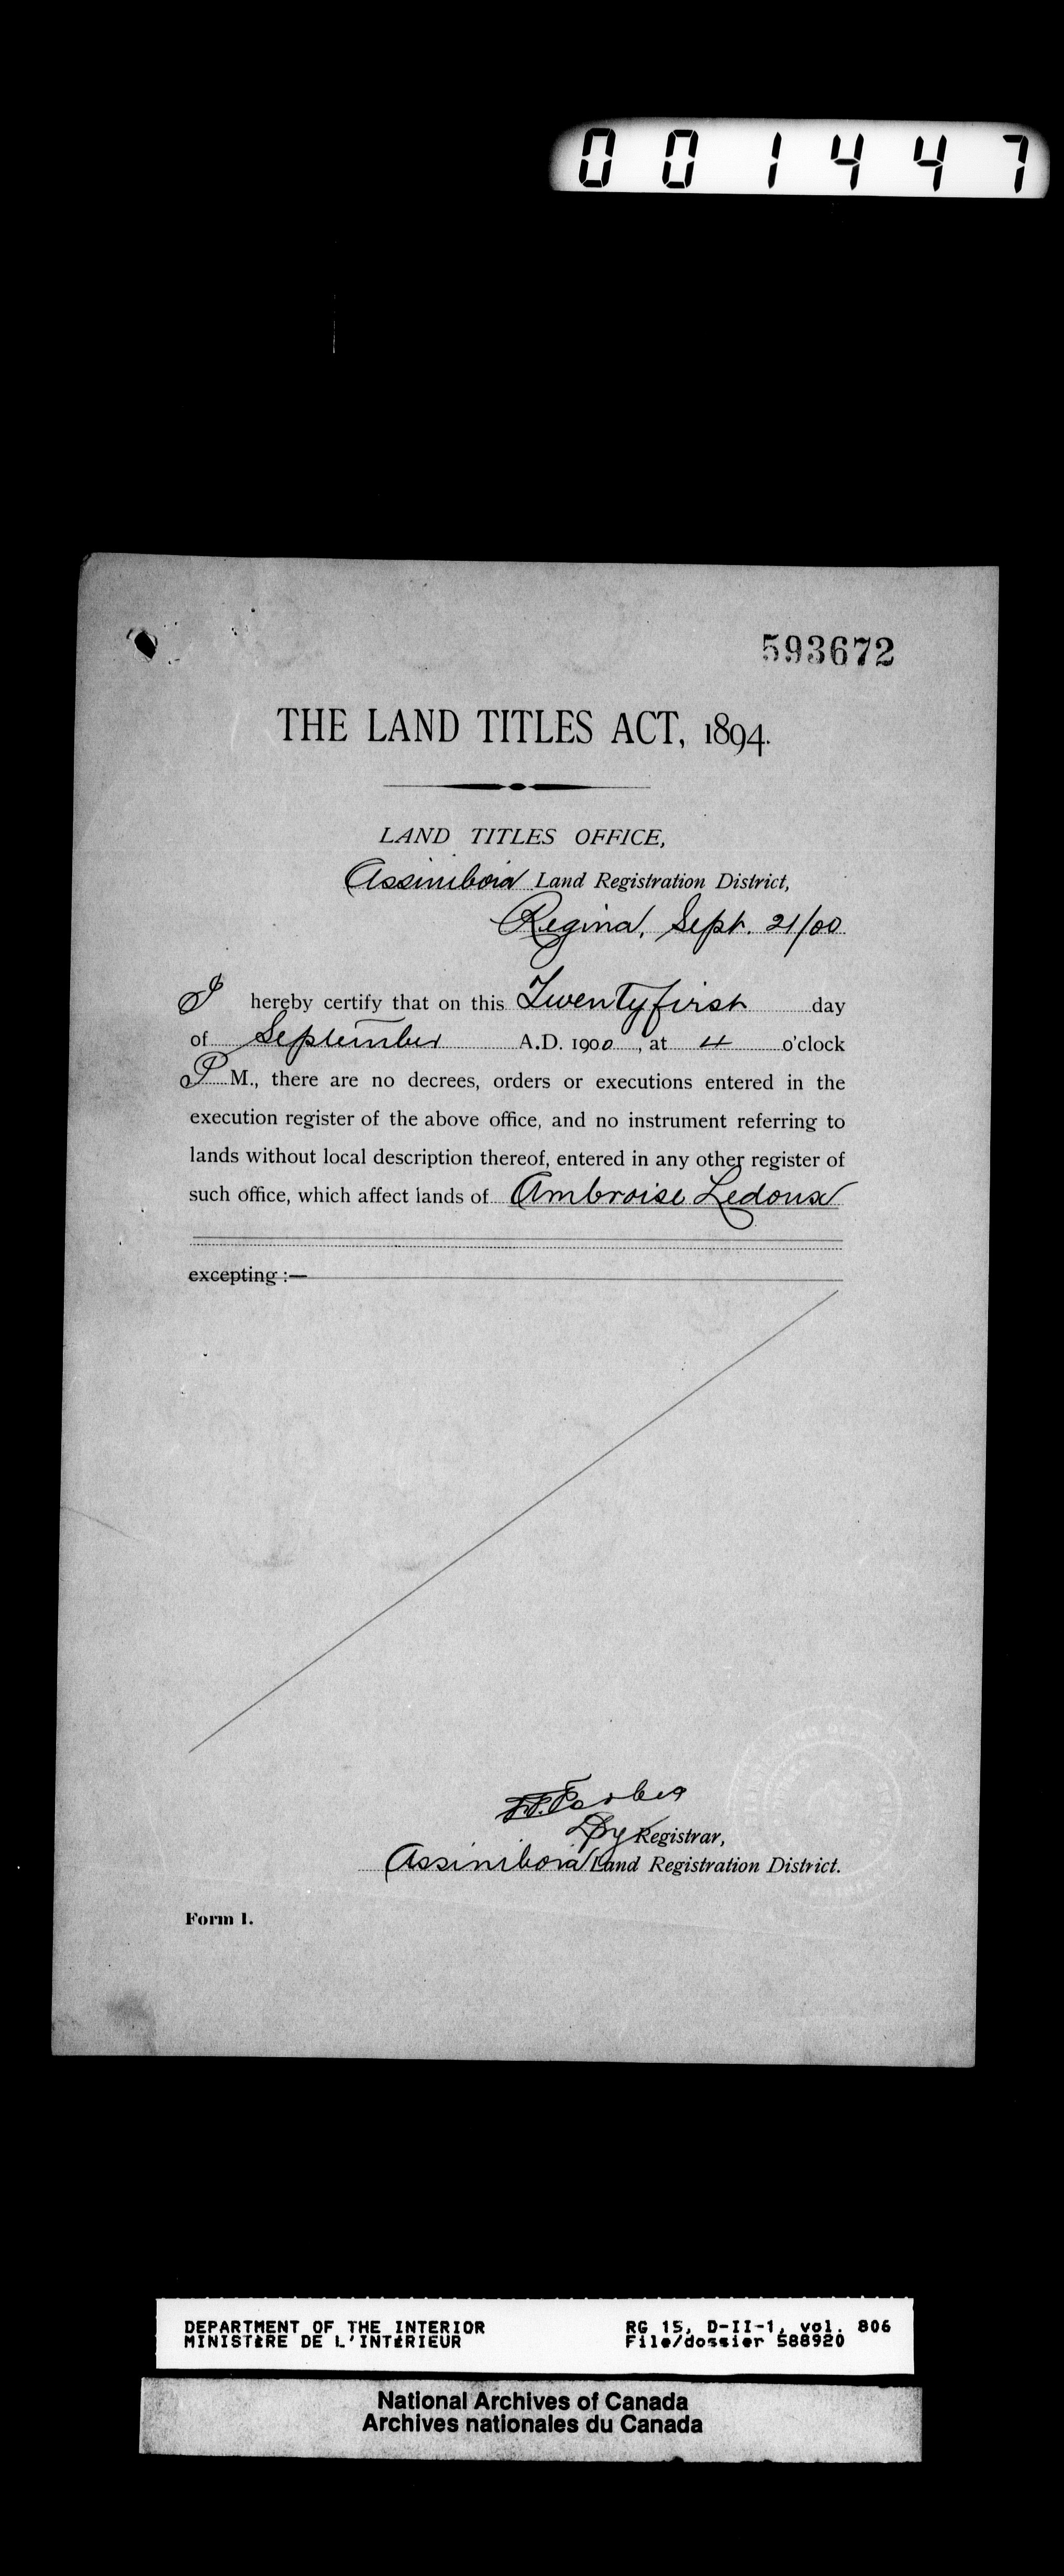 001447
593672
THE LAND TITLES ACT, 1894.
LAND TITLES OFFICE,
Assiniboia Land Registration District,
Regina, Sept. 21/00
I hereby certify that on this Twentyfirst day
of September A.D. 1900, at 4 o'clock
P M., there are no decrees, orders or executions entered in the
execution register of the above office, and no instrument referring to
lands without local description thereof, entered in any other register of
such office, which affect lands of Ambroise Ledoux
excepting :—
Dy Registrar,
Assiniboia Land Registration District.
Form 1.
DEPARTMENT OF THE INTERIOR RG 15, D-II-1, vol. 806
MINISTÈRE DE L'INTÉRIEUR File/dossier 588920
National Archives of Canada
Archives nationales du Canada